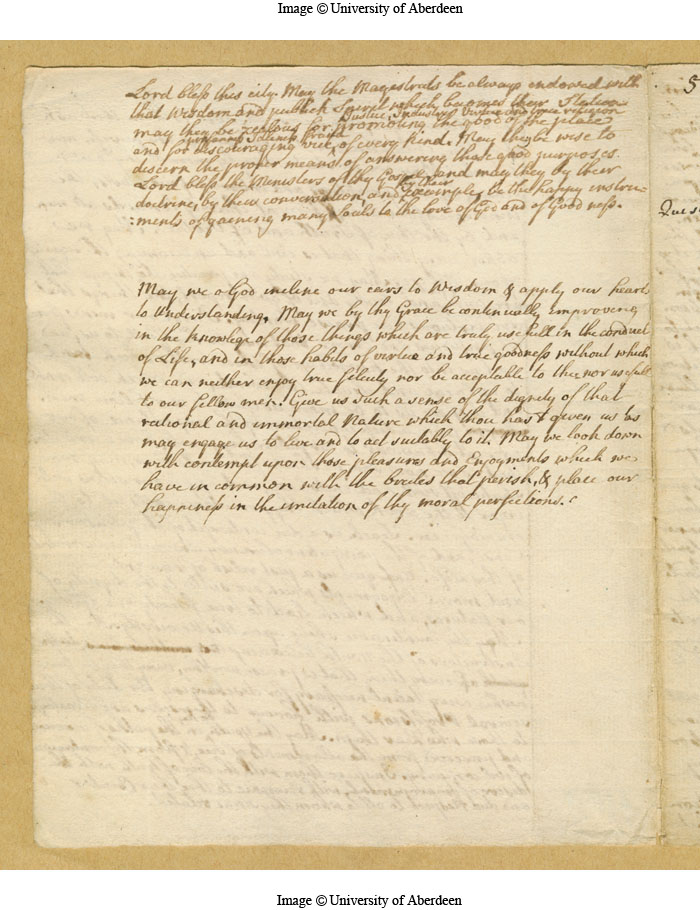 Image © University of Aberdeen
5
Lord bless this city. May the Magestrats be always endowed with
that Wisdom and publick Spirit which becomes their Station
Justice, Industry, Virtue and pure religion
may they be zealous for promoting the good of the place
and for discouraging vice, of every kind. May they be wise to
discern the proper means of answering these good purposes.
Lord bless the Ministers of thy Gospel, and may they by their
by their
doctrine, by their conversation, and Example, be the happy instru-
:ments of gaening many Souls to the love of God and of Goodness.
Ques
May we o God incline our ears to Wisdom & apply our hearts
to Understanding. May we by thy Grace be continually improving
in the knowlege of those things which are truly usefull in the conduct
of Life, and in those habits of virtue and true goodness without which
we can neither enjoy true felicity nor be acceptable to thee nor usefull
to our fellow men. Give us such a sense of the dignity of that
rational and immortal Nature which thou hast given us as
may engage us to live and to act suitably to it. May we look down
with contempt upon those pleasures and Enjoyments which we
have in common with the brutes that perish, & place our
happiness in the imitation of thy moral perfections.
Image © University of Aberdeen